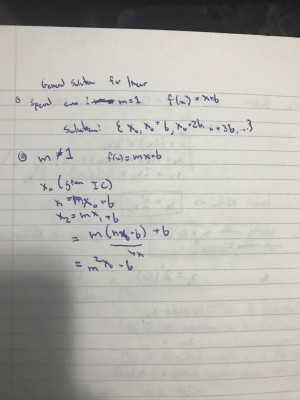 General Solution for linear
① Special case: m=1 f(x) = x+b
Solution: { x₀, x₀+b, x₀+2b, x+3b, ...}
② m ≠ 1 f(x) = mx+b
x₀ (given IC)
x₁ = mx₀ + b
x₂ = mx₁ + b
= m(mx₀+b) + b
= m²x₀ + b